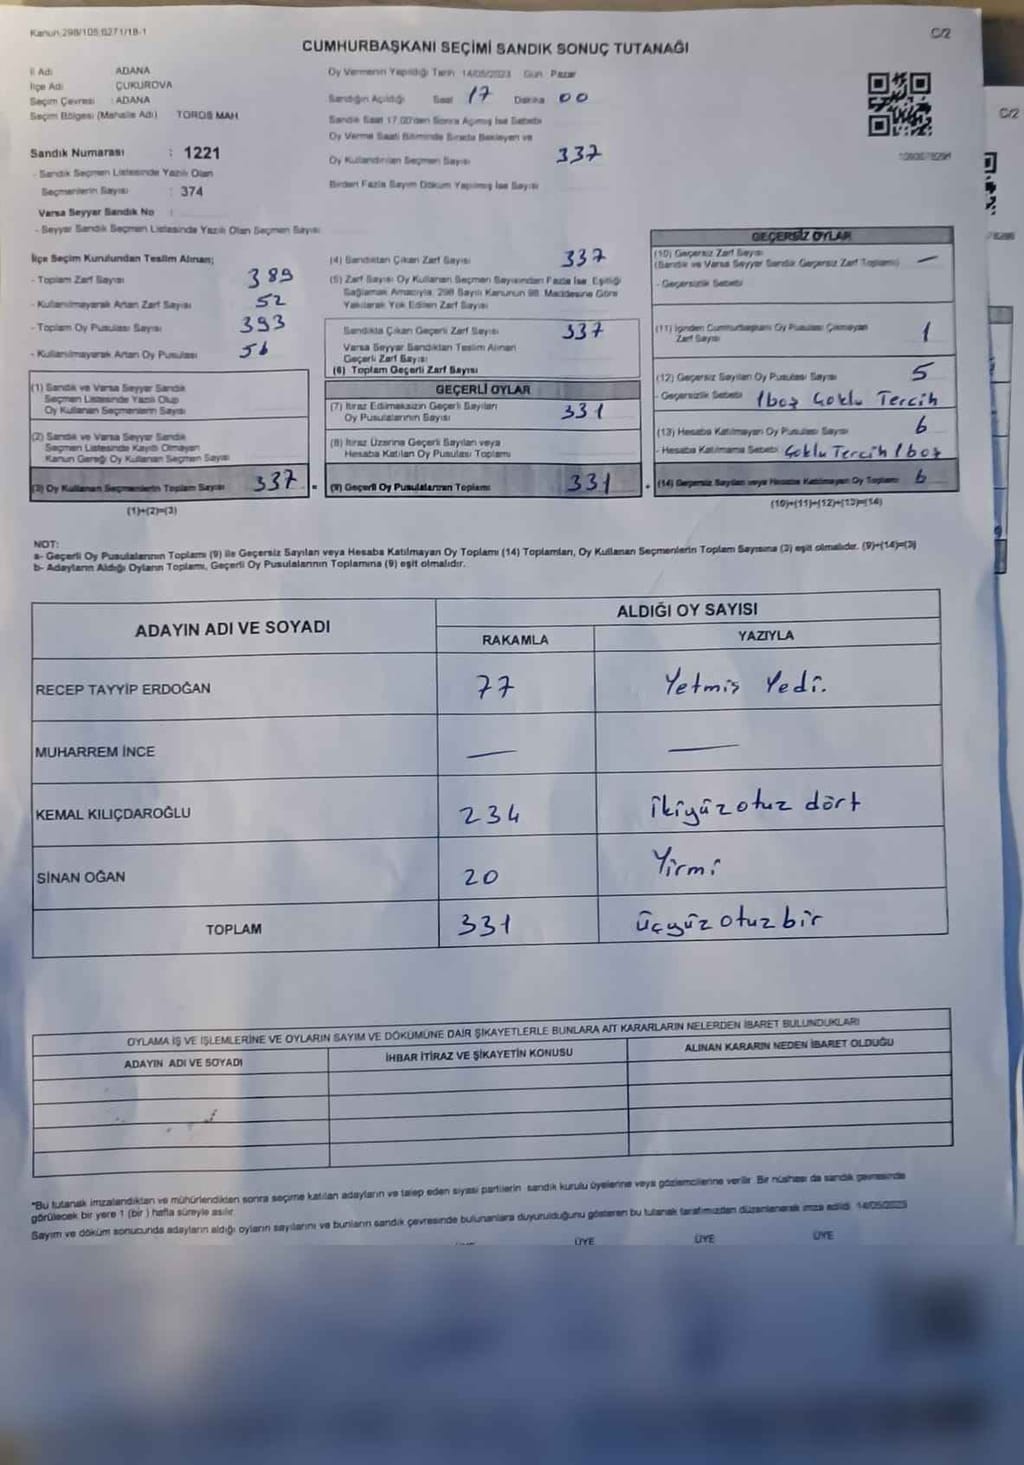 Kanun 298/105;6271/18-1
C/2
CUMHURBAŞKANI SEÇİMİ SANDIK SONUÇ TUTANAĞI
İl Adı ADANA
İlçe Adı ÇUKUROVA
Seçim Çevresi : ADANA
Seçim Bölgesi (Mahalle Adı) TOROS MAH
Sandık Numarası : 1221
- Sandık Seçmen Listesinde Yazılı Olan
Seçmenlerin Sayısı : 374
Varsa Seyyar Sandık No :
- Seyyar Sandık Seçmen Listesinde Yazılı Olan Seçmen Sayısı
Oy Vermenin Yapıldığı Tarih 14/05/2023 Gün Pazar
Sandığın Açıldığı Saat 17 Dakika 00
Sandık Saat 17.00'den Sonra Açılmış İse Sebebi
Oy Verme Saati Bitiminde Sırada Bekleyen ve
Oy Kullandırılan Seçmen Sayısı 337
Birden Fazla Sayım Döküm Yapılmış İse Sayısı
C/2
İlçe Seçim Kurulundan Teslim Alınan;
- Toplam Zarf Sayısı 389
- Kullanılmayarak Artan Zarf Sayısı 52
- Toplam Oy Pusulası Sayısı 393
- Kullanılmayarak Artan Oy Pusulası 56
(1) Sandık ve Varsa Seyyar Sandık
Seçmen Listesinde Yazılı Olup
Oy Kullanan Seçmenlerin Sayısı
(2) Sandık ve Varsa Seyyar Sandık
Seçmen Listesinde Kayıtlı Olmayan
Kanun Gereği Oy Kullanan Seçmen Sayısı
(3) Oy Kullanan Seçmenlerin Toplam Sayısı 337
(1)+(2)=(3)
(4) Sandıktan Çıkan Zarf Sayısı 337
(5) Zarf Sayısı Oy Kullanan Seçmen Sayısından Fazla İse, Eşitliği
Sağlamak Amacıyla, 298 Sayılı Kanunun 98. Maddesine Göre
Yakılarak Yok Edilen Zarf Sayısı
Sandıkta Çıkan Geçerli Zarf Sayısı 337
Varsa Seyyar Sandıktan Teslim Alınan
Geçerli Zarf Sayısı
(6) Toplam Geçerli Zarf Sayısı
GEÇERLİ OYLAR
(7) İtiraz Edilmeksizin Geçerli Sayılan
Oy Pusulalarının Sayısı 331
(8) İtiraz Üzerine Geçerli Sayılan veya
Hesaba Katılan Oy Pusulası Toplamı
(9) Geçerli Oy Pusulalarının Toplamı 331
GEÇERSİZ OYLAR
(10) Geçersiz Zarf Sayısı —
(Sandık ve Varsa Seyyar Sandık Geçersiz Zarf Toplamı)
- Geçersizlik Sebebi
(11) İçinden Cumhurbaşkanı Oy Pusulası Çıkmayan
Zarf Sayısı 1
(12) Geçersiz Sayılan Oy Pusulası Sayısı 5
- Geçersizlik Sebebi 1boş Çoklu Tercih
(13) Hesaba Katılmayan Oy Pusulası Sayısı 6
- Hesaba Katılmama Sebebi Çoklu Tercih 1boş
(14) Geçersiz Sayılan veya Hesaba Katılmayan Oy Toplamı 6
(10)+(11)+(12)+(13)=(14)
NOT:
a- Geçerli Oy Pusulalarının Toplamı (9) ile Geçersiz Sayılan veya Hesaba Katılmayan Oy Toplamı (14) Toplamları, Oy Kullanan Seçmenlerin Toplam Sayısına (3) eşit olmalıdır. (9)+(14)=(3)
b- Adayların Aldığı Oyların Toplamı, Geçerli Oy Pusulalarının Toplamına (9) eşit olmalıdır.
ADAYIN ADI VE SOYADI ALDIĞI OY SAYISI
RAKAMLA YAZIYLA
RECEP TAYYİP ERDOĞAN 77 Yetmiş Yedi.
MUHARREM İNCE — —
KEMAL KILIÇDAROĞLU 234 ikiyüzotuz dört
SİNAN OĞAN 20 Yirmi
TOPLAM 331 üçyüzotuzbir
OYLAMA İŞ VE İŞLEMLERİNE VE OYLARIN SAYIM VE DÖKÜMÜNE DAİR ŞİKAYETLERLE BUNLARA AİT KARARLARIN NELERDEN İBARET BULUNDUKLARI
ADAYIN ADI VE SOYADI İHBAR İTİRAZ VE ŞİKAYETİN KONUSU ALINAN KARARIN NEDEN İBARET OLDUĞU
*Bu tutanak imzalandıktan ve mühürlendikten sonra seçime katılan adayların ve talep eden siyasi partilerin sandık kurulu üyelerine veya gözlemcilerine verilir. Bir nüshası da sandık çevresinde
görülecek bir yere 1 (bir) hafta süreyle asılır.
Sayım ve döküm sonucunda adayların aldığı oyların sayılarını ve bunların sandık çevresinde bulunanlara duyurulduğunu gösteren bu tutanak tarafımızdan düzenlenerek imza edildi. 14/05/2023
ÜYE ÜYE ÜYE